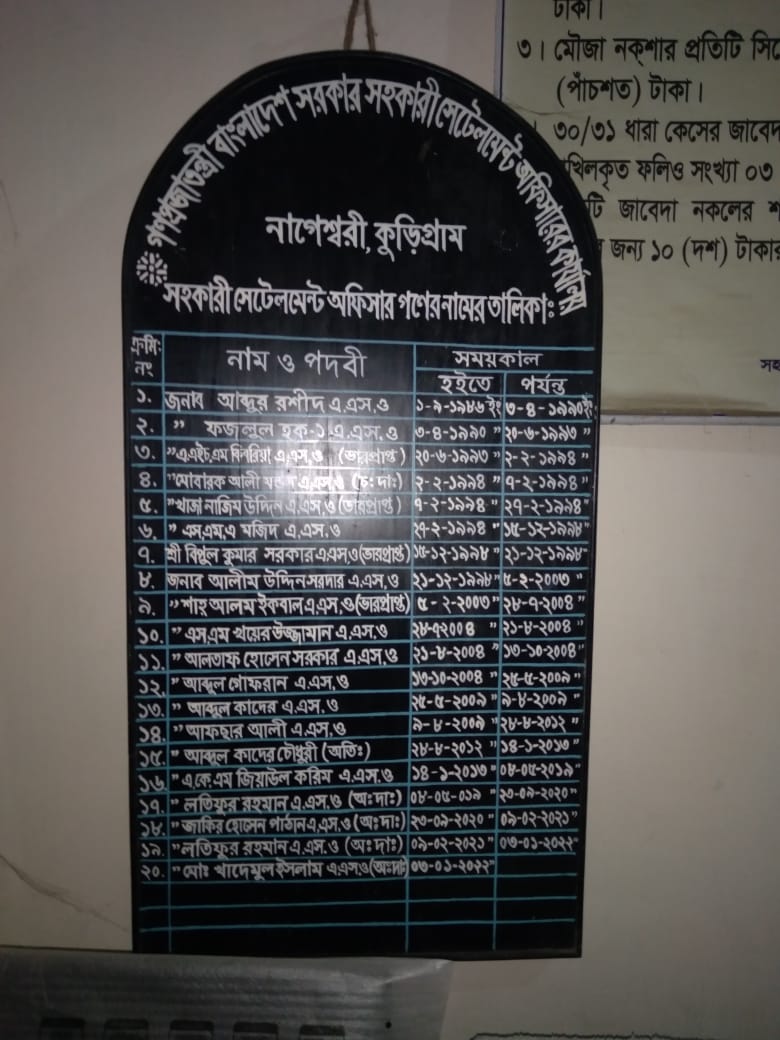 গণপ্রজাতন্ত্রী বাংলাদেশ সরকার সহকারী সেটেলমেন্ট অফিসারের কার্যালয়
নাগেশ্বরী, কুড়িগ্রাম
সহকারী সেটেলমেন্ট অফিসার গণের নামের তালিকা:
ক্রমিঃ নং নাম ও পদবী সময়কাল
হইতে পর্যন্ত
১. জনাব আব্দুর রশীদ এ.এস.ও ১-৯-১৯৮৬ ইং ৩-৪-১৯৯০ইং
২. " ফজলুল হক-১ এ.এস.ও ৩-৪-১৯৯০ " ২০-৬-১৯৯৩ "
৩. " এ.এইচ.এম এ.এস.ও (ভারপ্রাপ্ত) ২০-৬-১৯৯৩ " ২-২-১৯৯৪ "
৪. " মোবারক আলী এ.এস.ও (চঃ দাঃ) ২-২-১৯৯৪ " ৭-২-১৯৯৪ "
৫. " খাজা নাজিম উদ্দিন এ.এস.ও (ভারপ্রাপ্ত) ৭-২-১৯৯৪ " ২৭-২-১৯৯৪ "
৬. " এস.এম.এ মজিদ এ.এস.ও ২৭-২-১৯৯৪ " ১৫-১২-১৯৯৮ "
৭. শ্রী বিপুল কুমার সরকার এ.এস.ও (ভারপ্রাপ্ত) ১৫-১২-১৯৯৮ " ২১-১২-১৯৯৮ "
৮. জনাব আলীম উদ্দিন সরদার এ.এস.ও ২১-১২-১৯৯৮ " ৫-২-২০০৩ "
৯. " শাহ্ আলম ইকবাল এ.এস.ও (ভারপ্রাপ্ত) ৫-২-২০০৩ " ২৮-৭-২০০৪ "
১০. " এস.এম খয়ের উজ্জামান এ.এস.ও ২৮-৭২০০৪ " ২১-৮-২০০৪ "
১১. " আলতাফ হোসেন সরকার এ.এস.ও ২১-৮-২০০৪ " ১৩-১০-২০০৪ "
১২. " আব্দুল গোফরান এ.এস.ও ১৩-১০-২০০৪ " ২৫-৫-২০০৯ "
১৩. " আব্দুল কাদের এ.এস.ও ২৫-৫-২০০৯ " ৯-৮-২০০৯ "
১৪. " আফছার আলী এ.এস.ও ৯-৮-২০০৯ " ২৮-৮-২০১২ "
১৫. " আব্দুল কাদের চৌধুরী (অতিঃ) ২৮-৮-২০১২ " ১৪-১-২০১৩ "
১৬. " এ.কে.এম জিয়াউল করিম এ.এস.ও ১৪-১-২০১৩ " ০৮-০৫-২০১৯ "
১৭. " লতিফুর রহমান এ.এস.ও (অঃদাঃ) ০৮-০৫-০১৯ " ২৩-০৯-২০২০ "
১৮. " জাকির হোসেন পাঠান এ.এস.ও (অঃদাঃ) ২৩-০৯-২০২০ " ০৯-০২-২০২১ "
১৯. " লতিফুর রহমান এ.এস.ও (অঃদাঃ) ০৯-০২-২০২১ " ০৩-০১-২০২২ "
২০. " মোঃ খাদেমুল ইসলাম এ.এস.ও (অঃদাঃ) ০৩-০১-২০২২ "
টাকা।
৩। মৌজা নকশার প্রতিটি
(পাঁচশত) টাকা।
৩০/৩১ ধারা কেসের জাবেদা
ফলিও সংখ্যা ০৩
জাবেদা নকলের
জন্য ১০ (দশ)